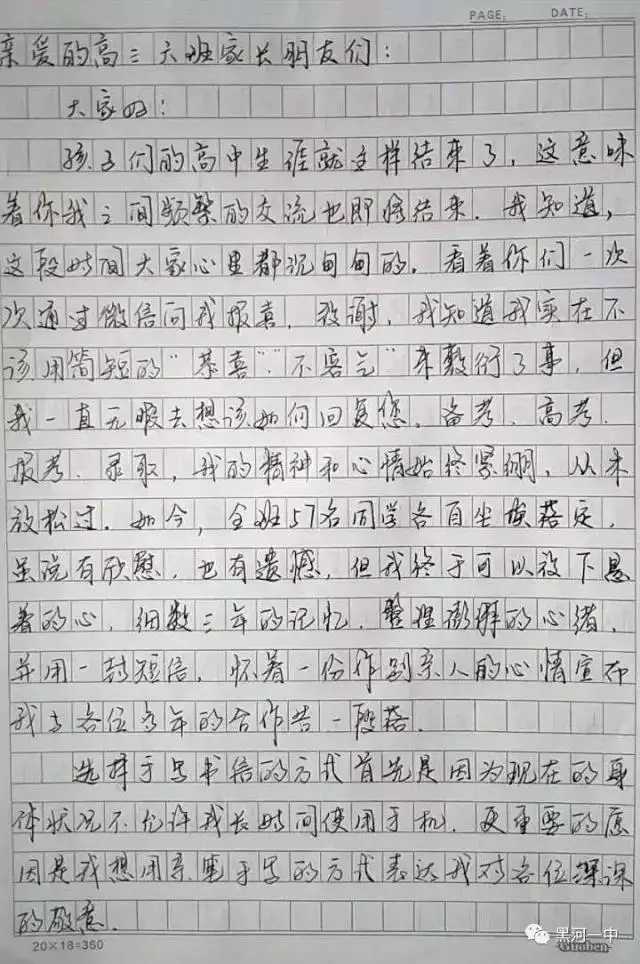 PAGE: DATE:
亲爱的高三六班家长朋友们:
大家好:
孩子们的高中生涯就这样结束了,这意味
着你我之间频繁的交流也即将结束.我知道,
这段时间大家心里都沉甸甸的.看着你们一次
次通过微信向我报喜.致谢,我知道我实在不
该用简短的"恭喜""不客气"来敷衍了事,但
我一直无暇去想该如何回复您.备考.高考.
报考.录取,我的精神和心情始终紧绷,从未
放松过.如今,全班57名同学各自尘埃落定,
虽说有欣慰.也有遗憾,但我终于可以放下悬
着的心,细数三年的记忆.整理澎湃的心绪,
并用一封短信,怀着一份作别亲人的心情宣布
我与各位多年的合作告一段落.
选择手写书信的方式首先是因为现在的身
体状况不允许我长时间使用手机.更重要的原
因是我想用亲笔手写的方式表达我对各位深深
的敬意.
20×18=360
黑河一中
Guoben